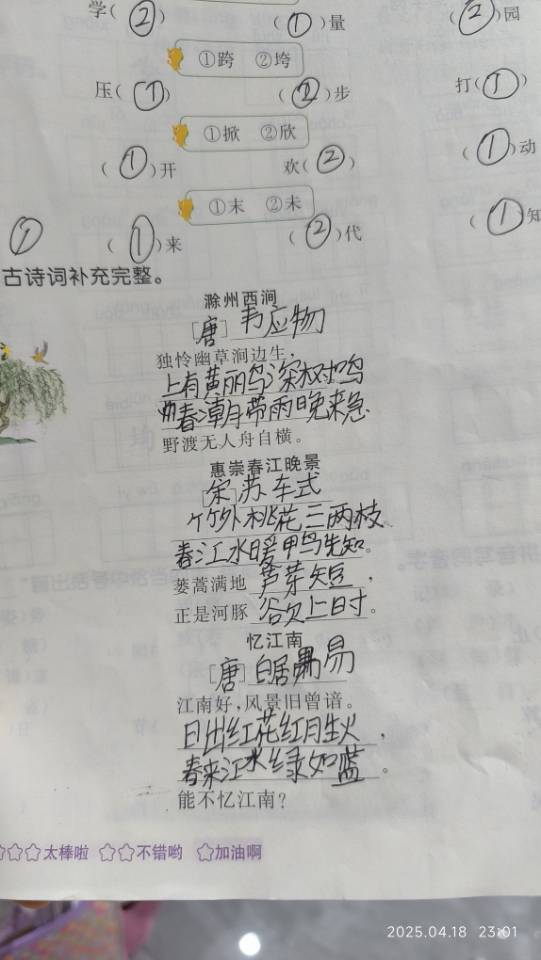 学(②) (①)量 (②)园
①跨 ②垮
压(①) (②)步 打(①)
①掀 ②欣
(①)开 欢(②) (①)动
①末 ②未
① (①)来 (②)代 (①)知
古诗词补充完整。
滁州西涧
[唐] 韦应物
独怜幽草涧边生,
上有黄丽鸟深树鸣
春潮带雨晚来急
野渡无人舟自横。
惠崇春江晚景
[宋] 苏车式
竹外桃花三两枝、
春江水暖甲鸟先知。
蒌蒿满地 芦芽短,
正是河豚 欲上时。
忆江南
[唐] 白居易
江南好,风景旧曾谙。
日出红花红月生火,
春来江水绿如蓝。
能不忆江南?
☆☆☆太棒啦 ☆☆不错哟 ☆加油啊
2025.04.18 23:01